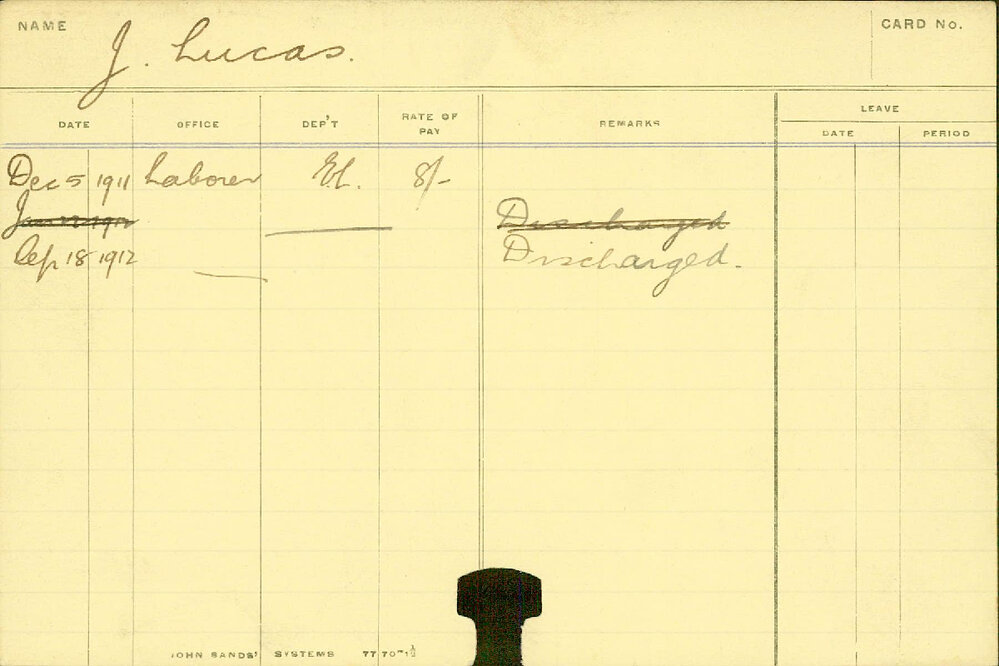 NAME J. Lucas. CARD No.
LEAVE
DATE OFFICE DEP'T RATE OF PAY REMARKS DATE PERIOD
Dec 5 1911 Laborer El. 8/-
Discharged
Sep 18 1912 Discharged.
JOHN SANDS' SYSTEMS 77 70